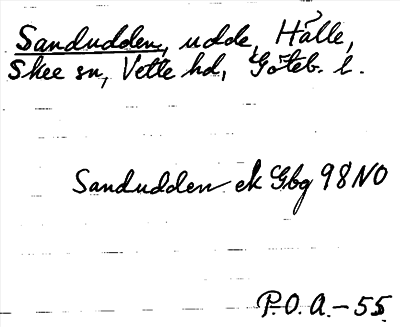 Sandudden, udde, Hälle,
Skee sn, Vette hd, Göteb. l.
Sandudden ek Gbg 98 NO
P.O.A. - 55